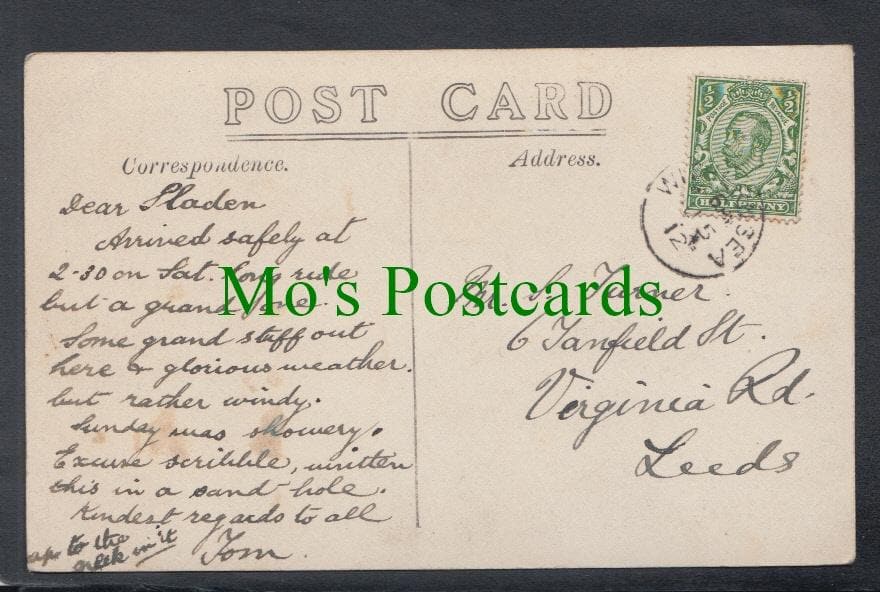 POST CARD
Correspondence.
Address.
½ ½
POSTAGE REVENUE
HALFPENNY
5
12
Dear Sladen
Arrived safely at
2-30 on Sat. Long ride
but a grand one.
Some grand stuff out
here & glorious weather.
but rather windy.
Sunday was showery.
Excuse scribble, written
this in a sand hole.
Kindest regards to all
Tom.
up to the
neck in it
Mr. S. Turner.
6 Tanfield St.
Virginia Rd.
Leeds
Mo's Postcards